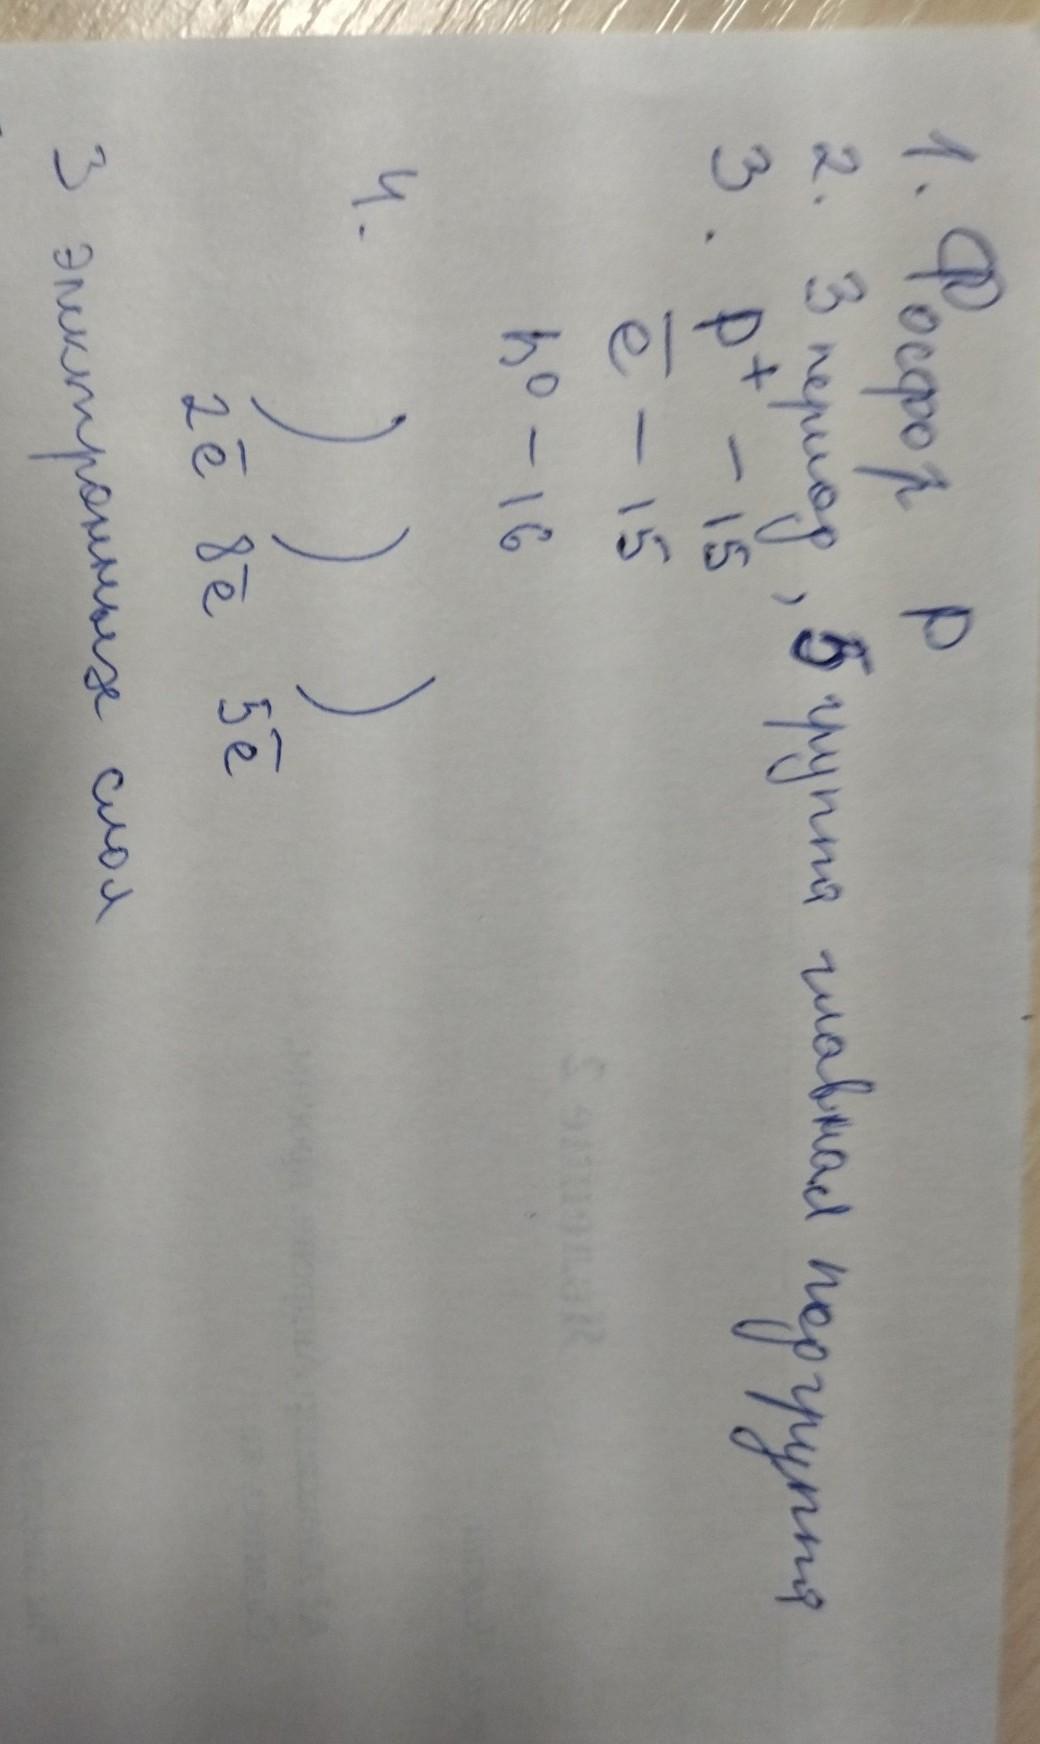 1. Фосфор P
2. 3 период, 5 группа главная подгруппа
3. p+ - 15
e̅ - 15
n0 - 16
4. ) ) )
2e̅ 8e̅ 5e̅
3 электронных слоя